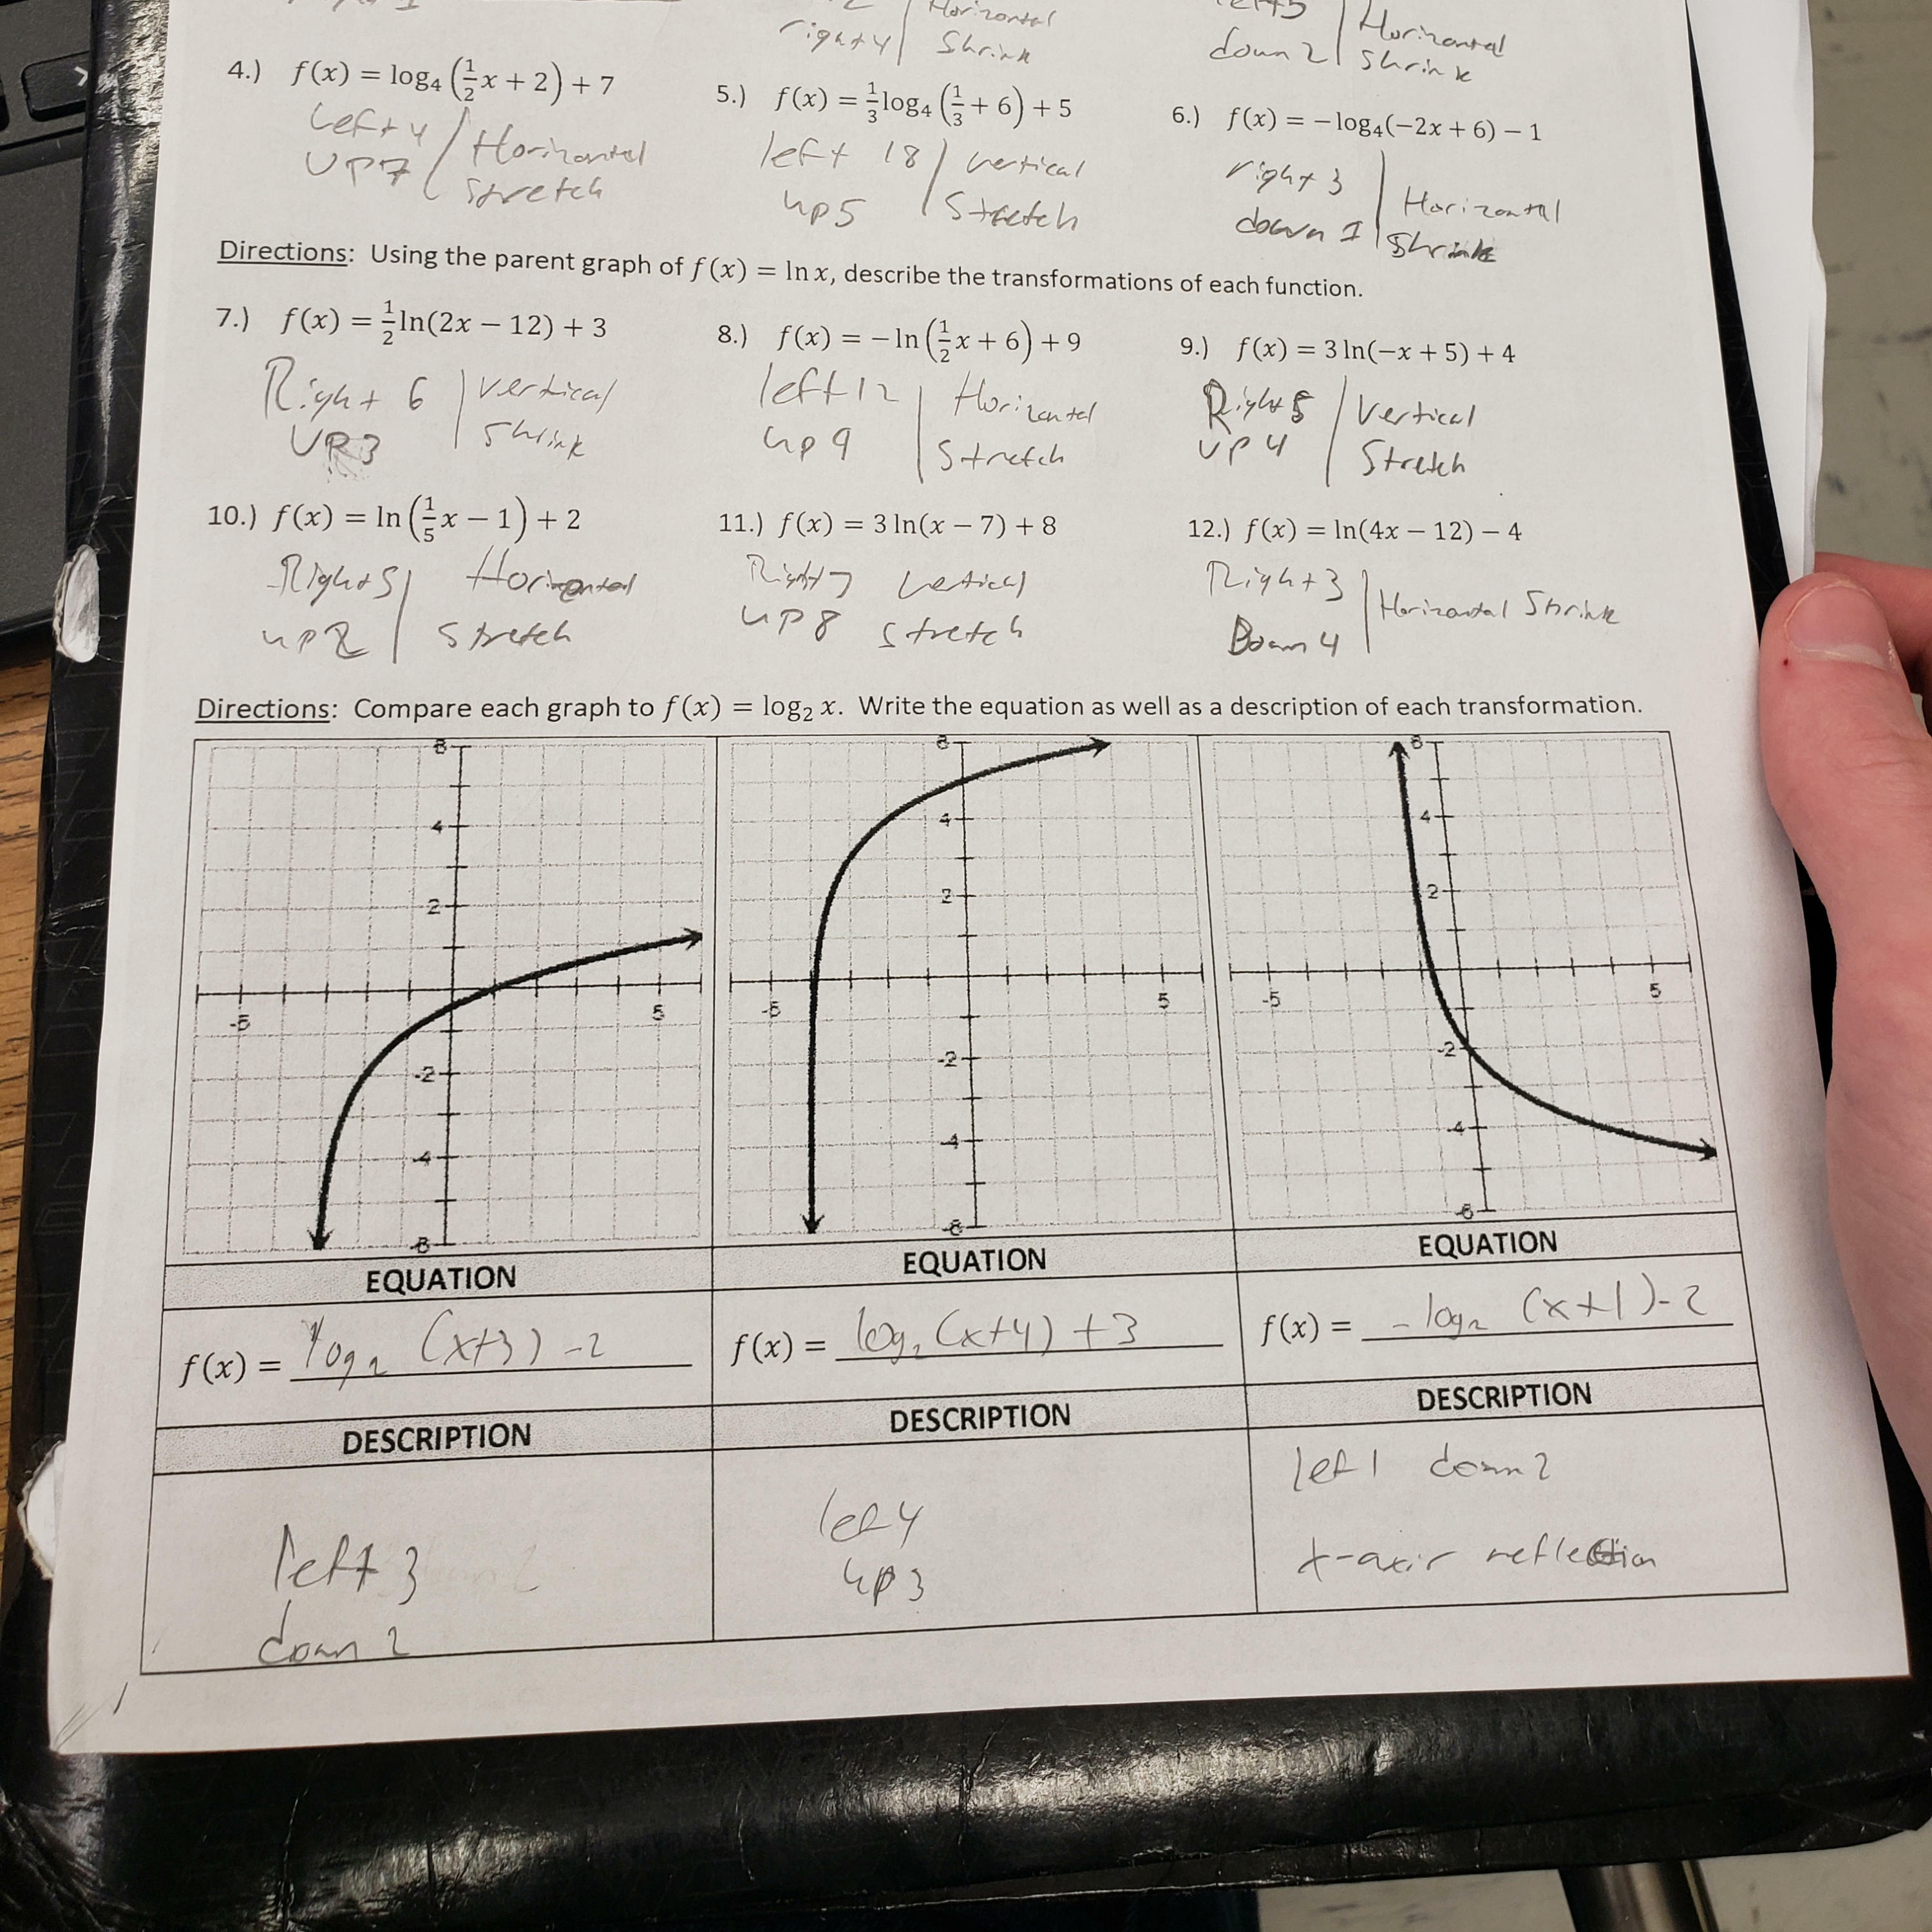 Horizontal
right 4 | Shrink
Horizontal
down 2 | Shrink
4.) f(x) = log₄(½x + 2) + 7
left 4 | Horizontal
UP7 | Stretch
5.) f(x) = ⅓log₄(⅓ + 6) + 5
left 18 | vertical
up 5 | Stretch
6.) f(x) = −log₄(−2x + 6) − 1
right 3 | Horizontal
down 1 | Shrink
Directions: Using the parent graph of f(x) = ln x, describe the transformations of each function.
7.) f(x) = ½ln(2x − 12) + 3
Right 6 | vertical
UP3 | Shrink
8.) f(x) = −ln(½x + 6) + 9
left 12 | Horizontal
up 9 | Stretch
9.) f(x) = 3 ln(−x + 5) + 4
Right 5 | Vertical
UP 4 | Stretch
10.) f(x) = ln(⅕x − 1) + 2
Right 5 | Horizontal
up 2 | Stretch
11.) f(x) = 3 ln(x − 7) + 8
Right 7 vertical
up 8 stretch
12.) f(x) = ln(4x − 12) − 4
Right 3 | Horizontal Shrink
Down 4
Directions: Compare each graph to f(x) = log₂ x. Write the equation as well as a description of each transformation.
6
4
2
-5 5
-2
-4
-6
6
4
2
-5 5
-2
-4
-6
6
4
2
-5 5
-2
-4
-6
EQUATION
EQUATION
EQUATION
f(x) = log₂ (x+3) -2
f(x) = log₂ (x+4) +3
f(x) = - log₂ (x+1)-2
DESCRIPTION
DESCRIPTION
DESCRIPTION
left 3
down 2
lef 4
up 3
lef 1 down 2
x-axis reflection